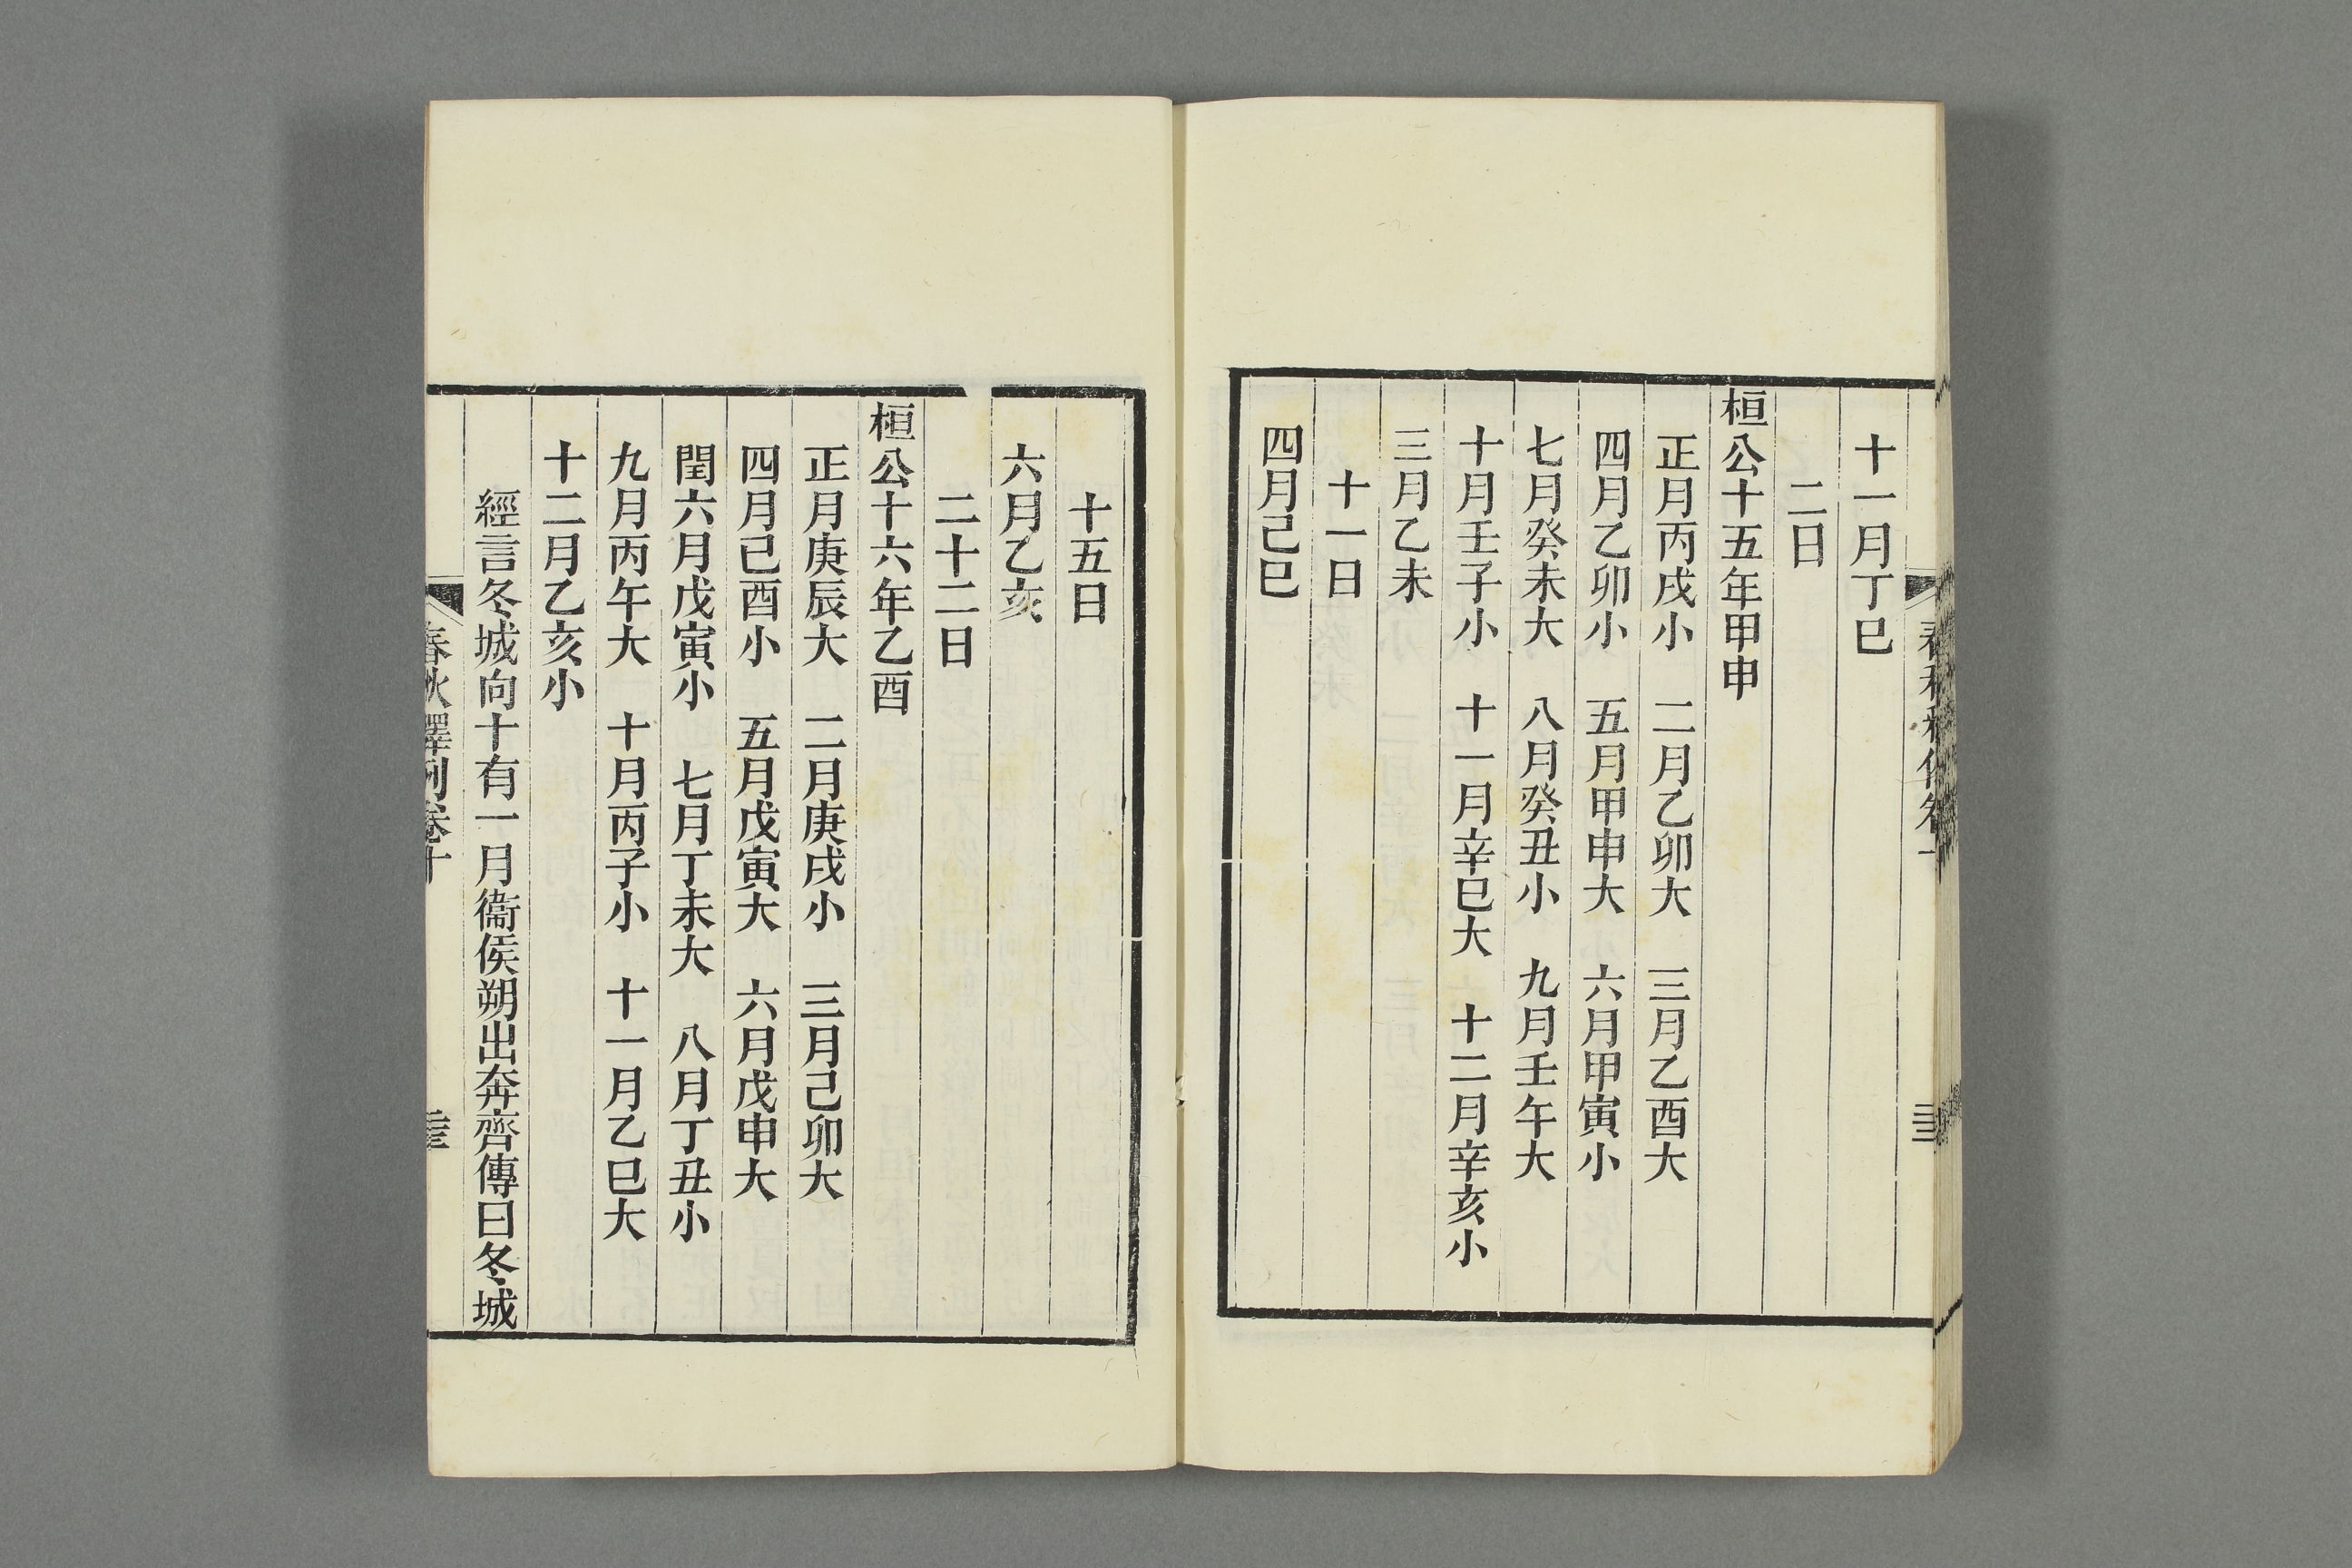 十一月丁巳
二日
桓公十五年甲申
正月丙戌小　二月乙卯大　三月乙酉大
四月乙卯小　五月甲申大　六月甲寅小
七月癸未大　八月癸丑小　九月壬午大
十月壬子小　十一月辛巳大　十二月辛亥小
三月乙未
十一日
四月己巳
十五日
六月乙亥
二十二日
桓公十六年乙酉
正月庚辰大　二月庚戌小　三月己卯大
四月己酉小　五月戊寅大　六月戊申大
閏六月戊寅小　七月丁未大　八月丁丑小
九月丙午大　十月丙子小　十一月乙巳大
十二月乙亥小
經言冬城向十有一月衞侯朔出奔齊傳曰冬城
春秋釋例卷十